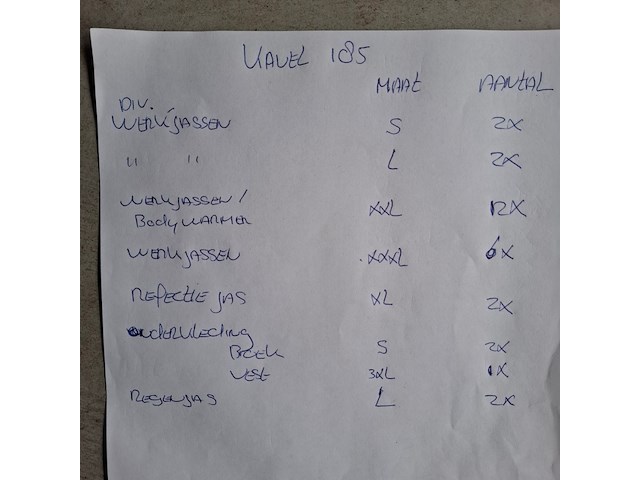 KAVEL 185
MAAT AANTAL
DIV.
WERKJASSEN S 2X
" " L 2X
WERKJASSEN /
BodyWARMER XXL 12X
WERKJASSEN XXXL 6X
REFLECTIE JAS XL 2X
ONDERKLEDING
BROEK S 2X
VEST 3XL 1X
REGENJAS L 2X